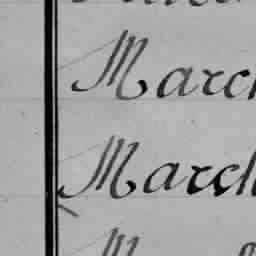 March
March